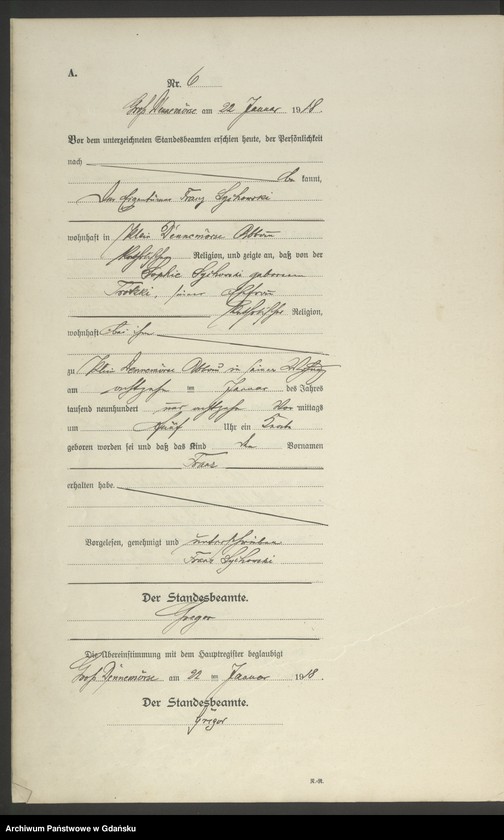 A.
Nr. 6
Groß Dennemörse am 22 Januar 1918.
Vor dem unterzeichneten Standesbeamten erschien heute, der Persönlichkeit
nach
be kannt,
Der Eigentümer Franz
wohnhaft in Klein Dennemörse Abbau
katholischer Religion, und zeigte an, daß von der
Sophie geborenen
seiner Ehefrau
katholischer Religion,
wohnhaft bei ihm
zu Klein Dennemörse Abbau in seiner Wohnung
am achtzehn ten Januar des Jahres
tausend neunhundert und achtzehn Vor mittags
um fünf Uhr ein Knabe
geboren worden sei und daß das Kind den Vornamen
Franz
erhalten habe.
Vorgelesen, genehmigt und unterschrieben
Franz
Der Standesbeamte.
Gregor
Die Übereinstimmung mit dem Hauptregister beglaubigt
Groß Dennemörse am 22 ten Januar 1918.
Der Standesbeamte.
Gregor
R.-R.
Archiwum Państwowe w Gdańsku